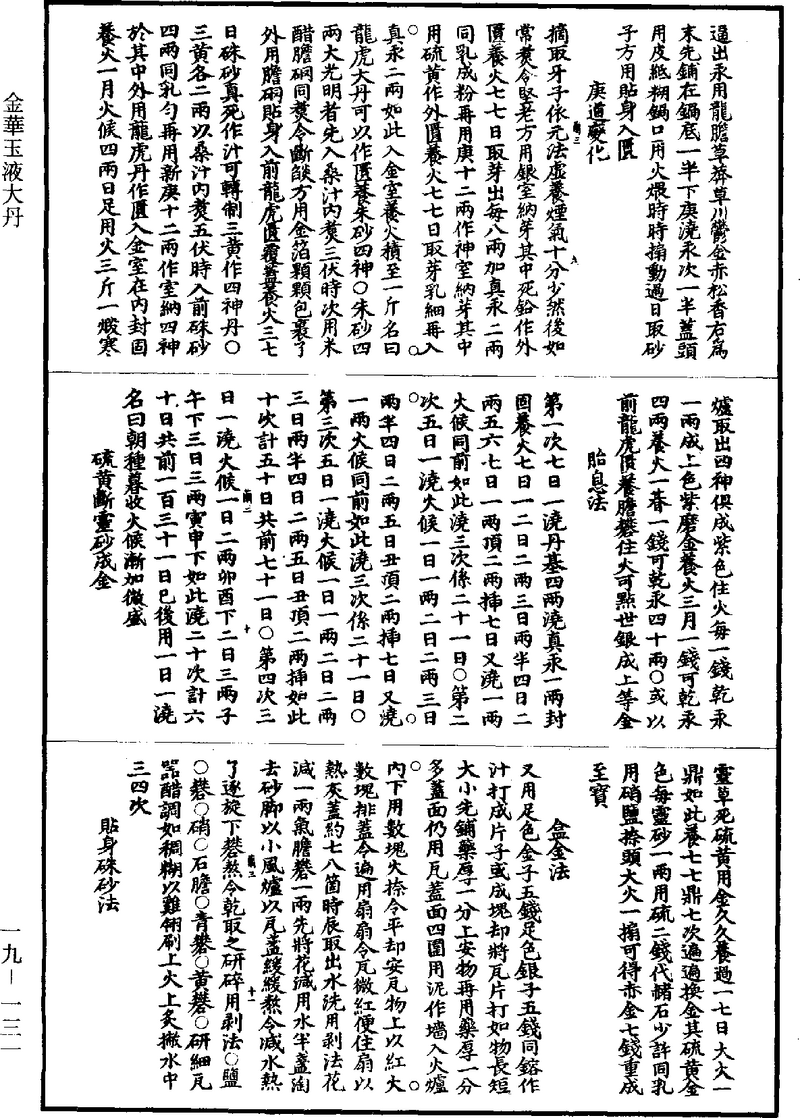 逼出汞用龍膽草莽草川鬱金赤松香右爲
末先鋪在鍋底一半下庚澆汞次一半蓋頭
用皮紙糊鍋口用火煨時時搧動過日取砂
子方用貼身入匱
庚道變化
摘取牙子依元法虛養煙氣十分少然後如
常煑令堅老方用銀室納芽其中死鉛作外
匱養火七七日取芽出每八兩加真汞二兩
同乳成粉再用庚十二兩作神室納芽其中
用硫黃作外匱養火七七日取芽乳細再入
真汞二兩如此入金室養火積至一斤名曰
龍虎大丹可以作匱養朱砂四神○朱砂四
兩大光明者先入桑汁內煑三伏時次用米
醋膽礬同煑令斷燄方用金箔顆顆包裹了
外用膽礬貼身入前龍虎匱覆蓋養火三七
日硃砂真死作汁可轉制三黃作四神丹○
三黃各二兩以桑汁內煑五伏時入前硃砂
四兩同乳勻再用新庚十二兩作室納四神
於其中外用龍虎丹作匱入金室在內封固
養火一月火候四兩日足用火三斤一煅寒
爐取出四神俱成紫色住火每一錢乾汞
一兩成上色紫磨金養火三月一錢可乾汞
四兩養火一春一錢可乾汞四十兩○或以
前龍虎匱養膽礬住火可點世銀成上等金
胎息法
第一次七日一澆丹基四兩澆真汞一兩封
固養火七日一二日二兩三日兩半四日二
兩五六七日一兩頂二兩揷七日又澆一兩
火候同前如此澆三次係二十一日○第二
次五日一澆火候一日一兩二日二兩三日
兩半四日二兩五日丑頂二兩揷七日又澆
一兩火候同前如此澆三次係二十一日○
第三次五日一澆火候一日一兩二日二兩
三日兩半四日二兩五日丑頂二兩揷如此
十次計五十日共前七十一日○第四次三
日一澆火候一日二兩卯酉下二日三兩子
午下三日三兩寅申下如此澆二十次計六
十日共前一百三十一日已後用一日一澆
名曰朝種暮收火候漸如微盛
硫黃斷靈砂成金
靈草死硫黃用金久久養過一七日大火一
鼎如此養七七鼎七次遍遍換金其硫黃金
色每靈砂一兩用硫二錢代赭石少許同乳
用硝鹽捺頭大火一搧可得赤金七錢重成
至寶
盒金法
又用足色金子五錢足色銀子五錢同鎔作
汁打成片子或成塊却將瓦片打如物長短
大小先鋪藥厚一分上安物再用藥厚一分
多蓋面仍用瓦蓋面四圍用泥作墻入火爐
內下用數塊火捺令平却安瓦物上以紅火
數塊排蓋令遍用扇扇令瓦微紅便住扇以
熱灰蓋約七八箇時辰取出水洗用剥法花
減一兩氣膽礬一兩先將花減用水半盞淘
去砂脚以小風爐以瓦盖緩緩熬令減水熱
了逐旋下礬熬令乾取之研碎用剥法○鹽
○礬○硝○石膽○青礬○黃礬○研細瓦
器醋調如稠糊以雞翎刷上火上炙撇水中
三四次
貼身硃砂法
金華玉液大丹
一九－一三一